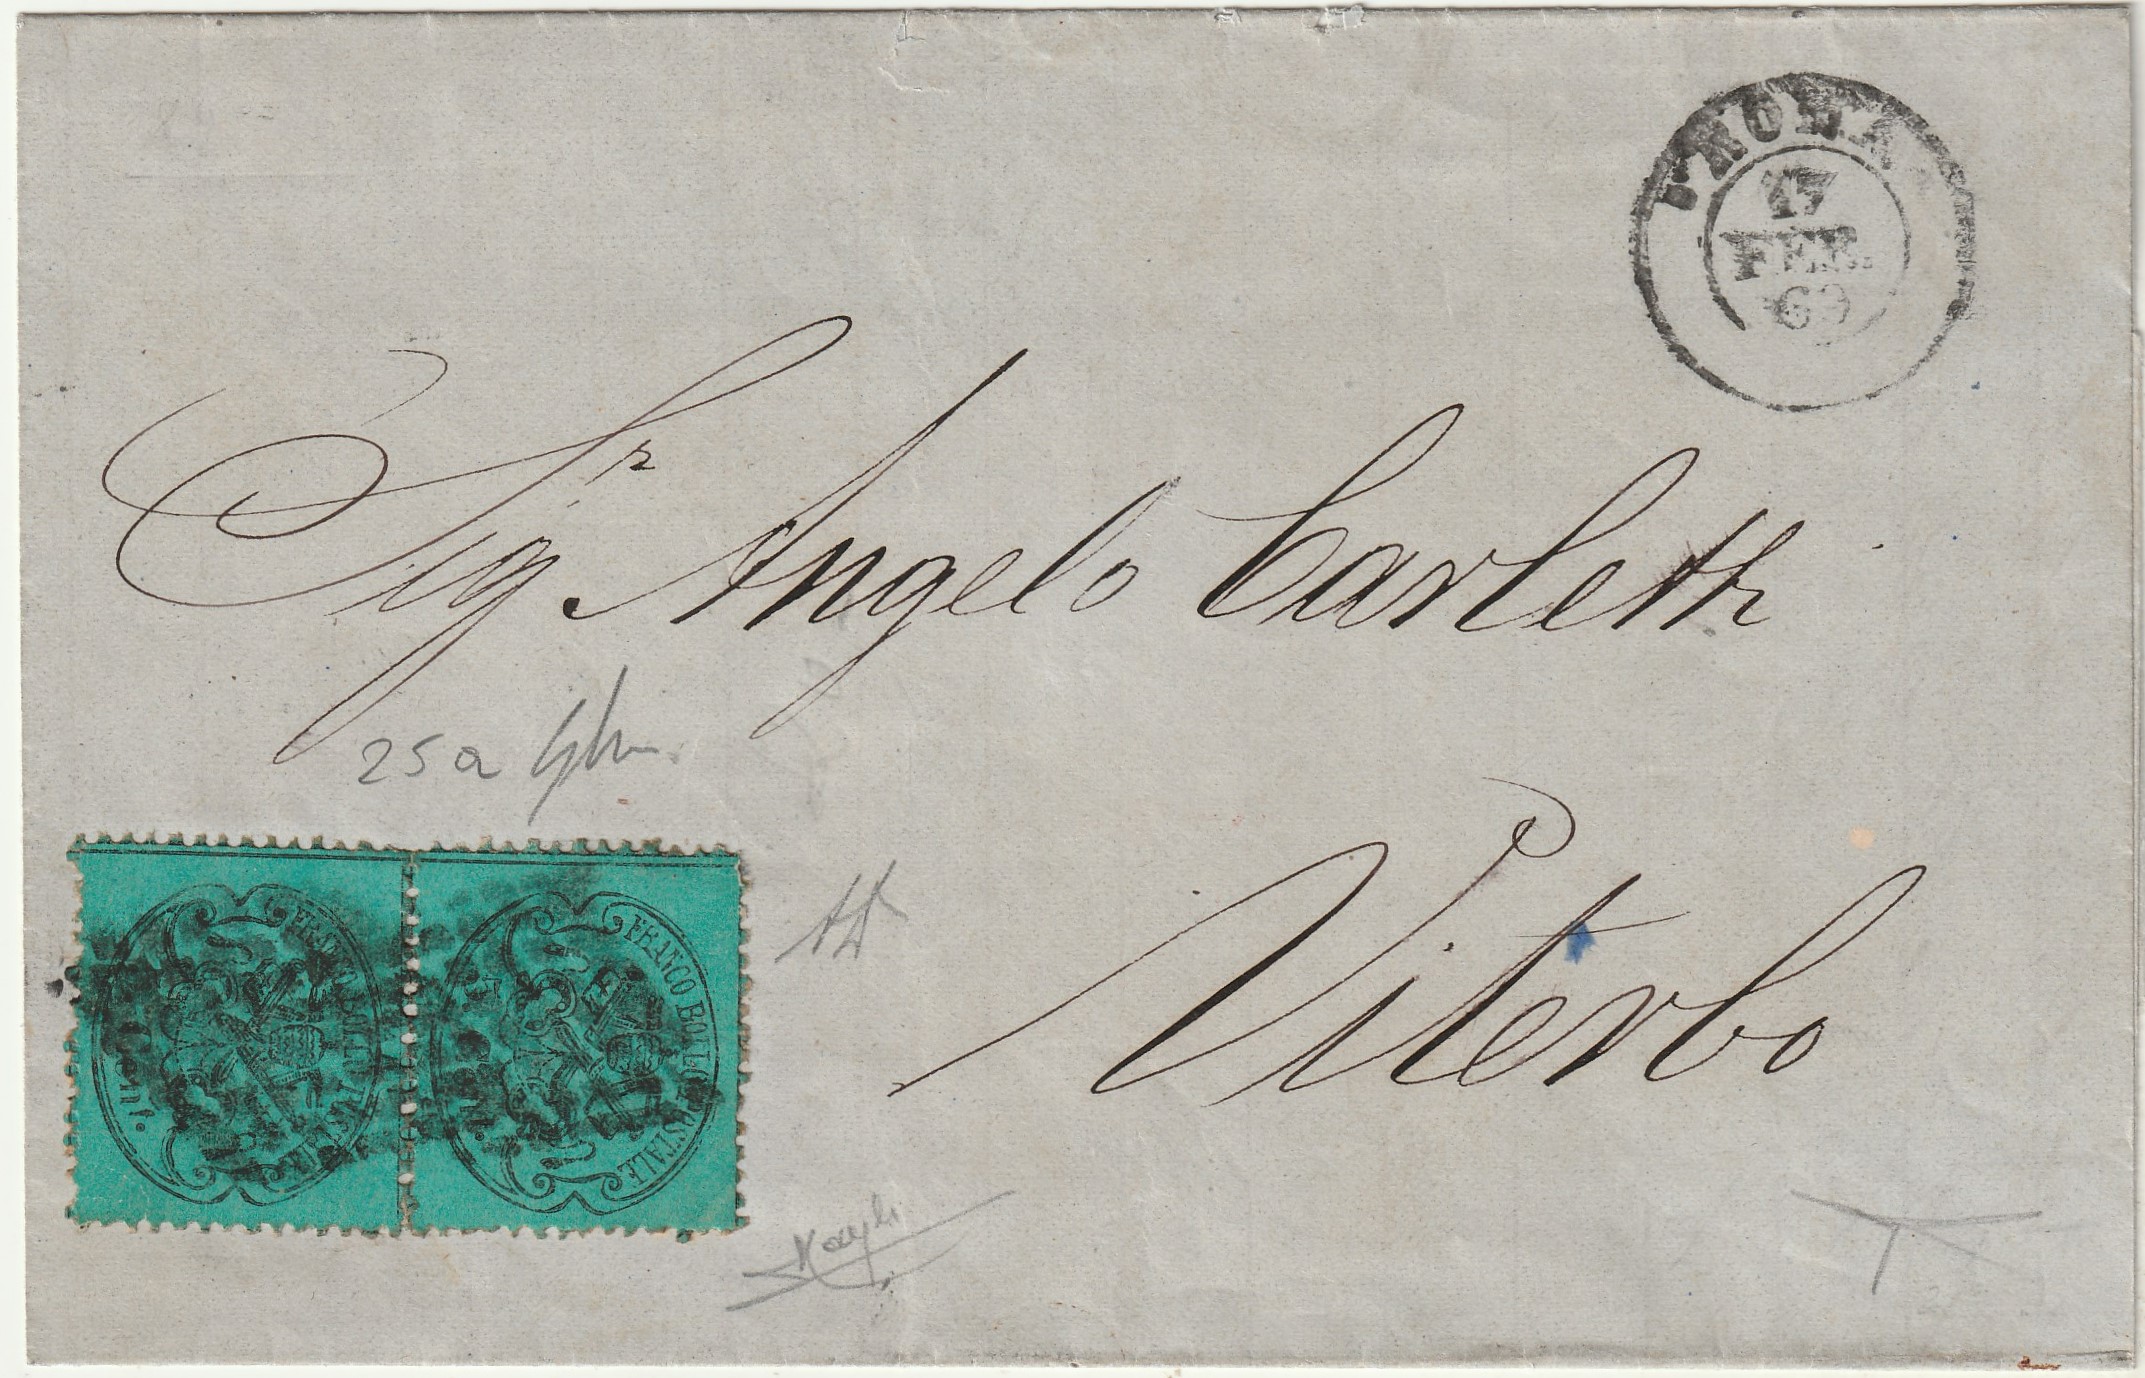 ROMA
17
FEB.
69
Sigr Angelo Carletti
25a
Viterbo
FRANCO BOLLO POSTALE
FRANCO BOLLO POSTALE
Cent.